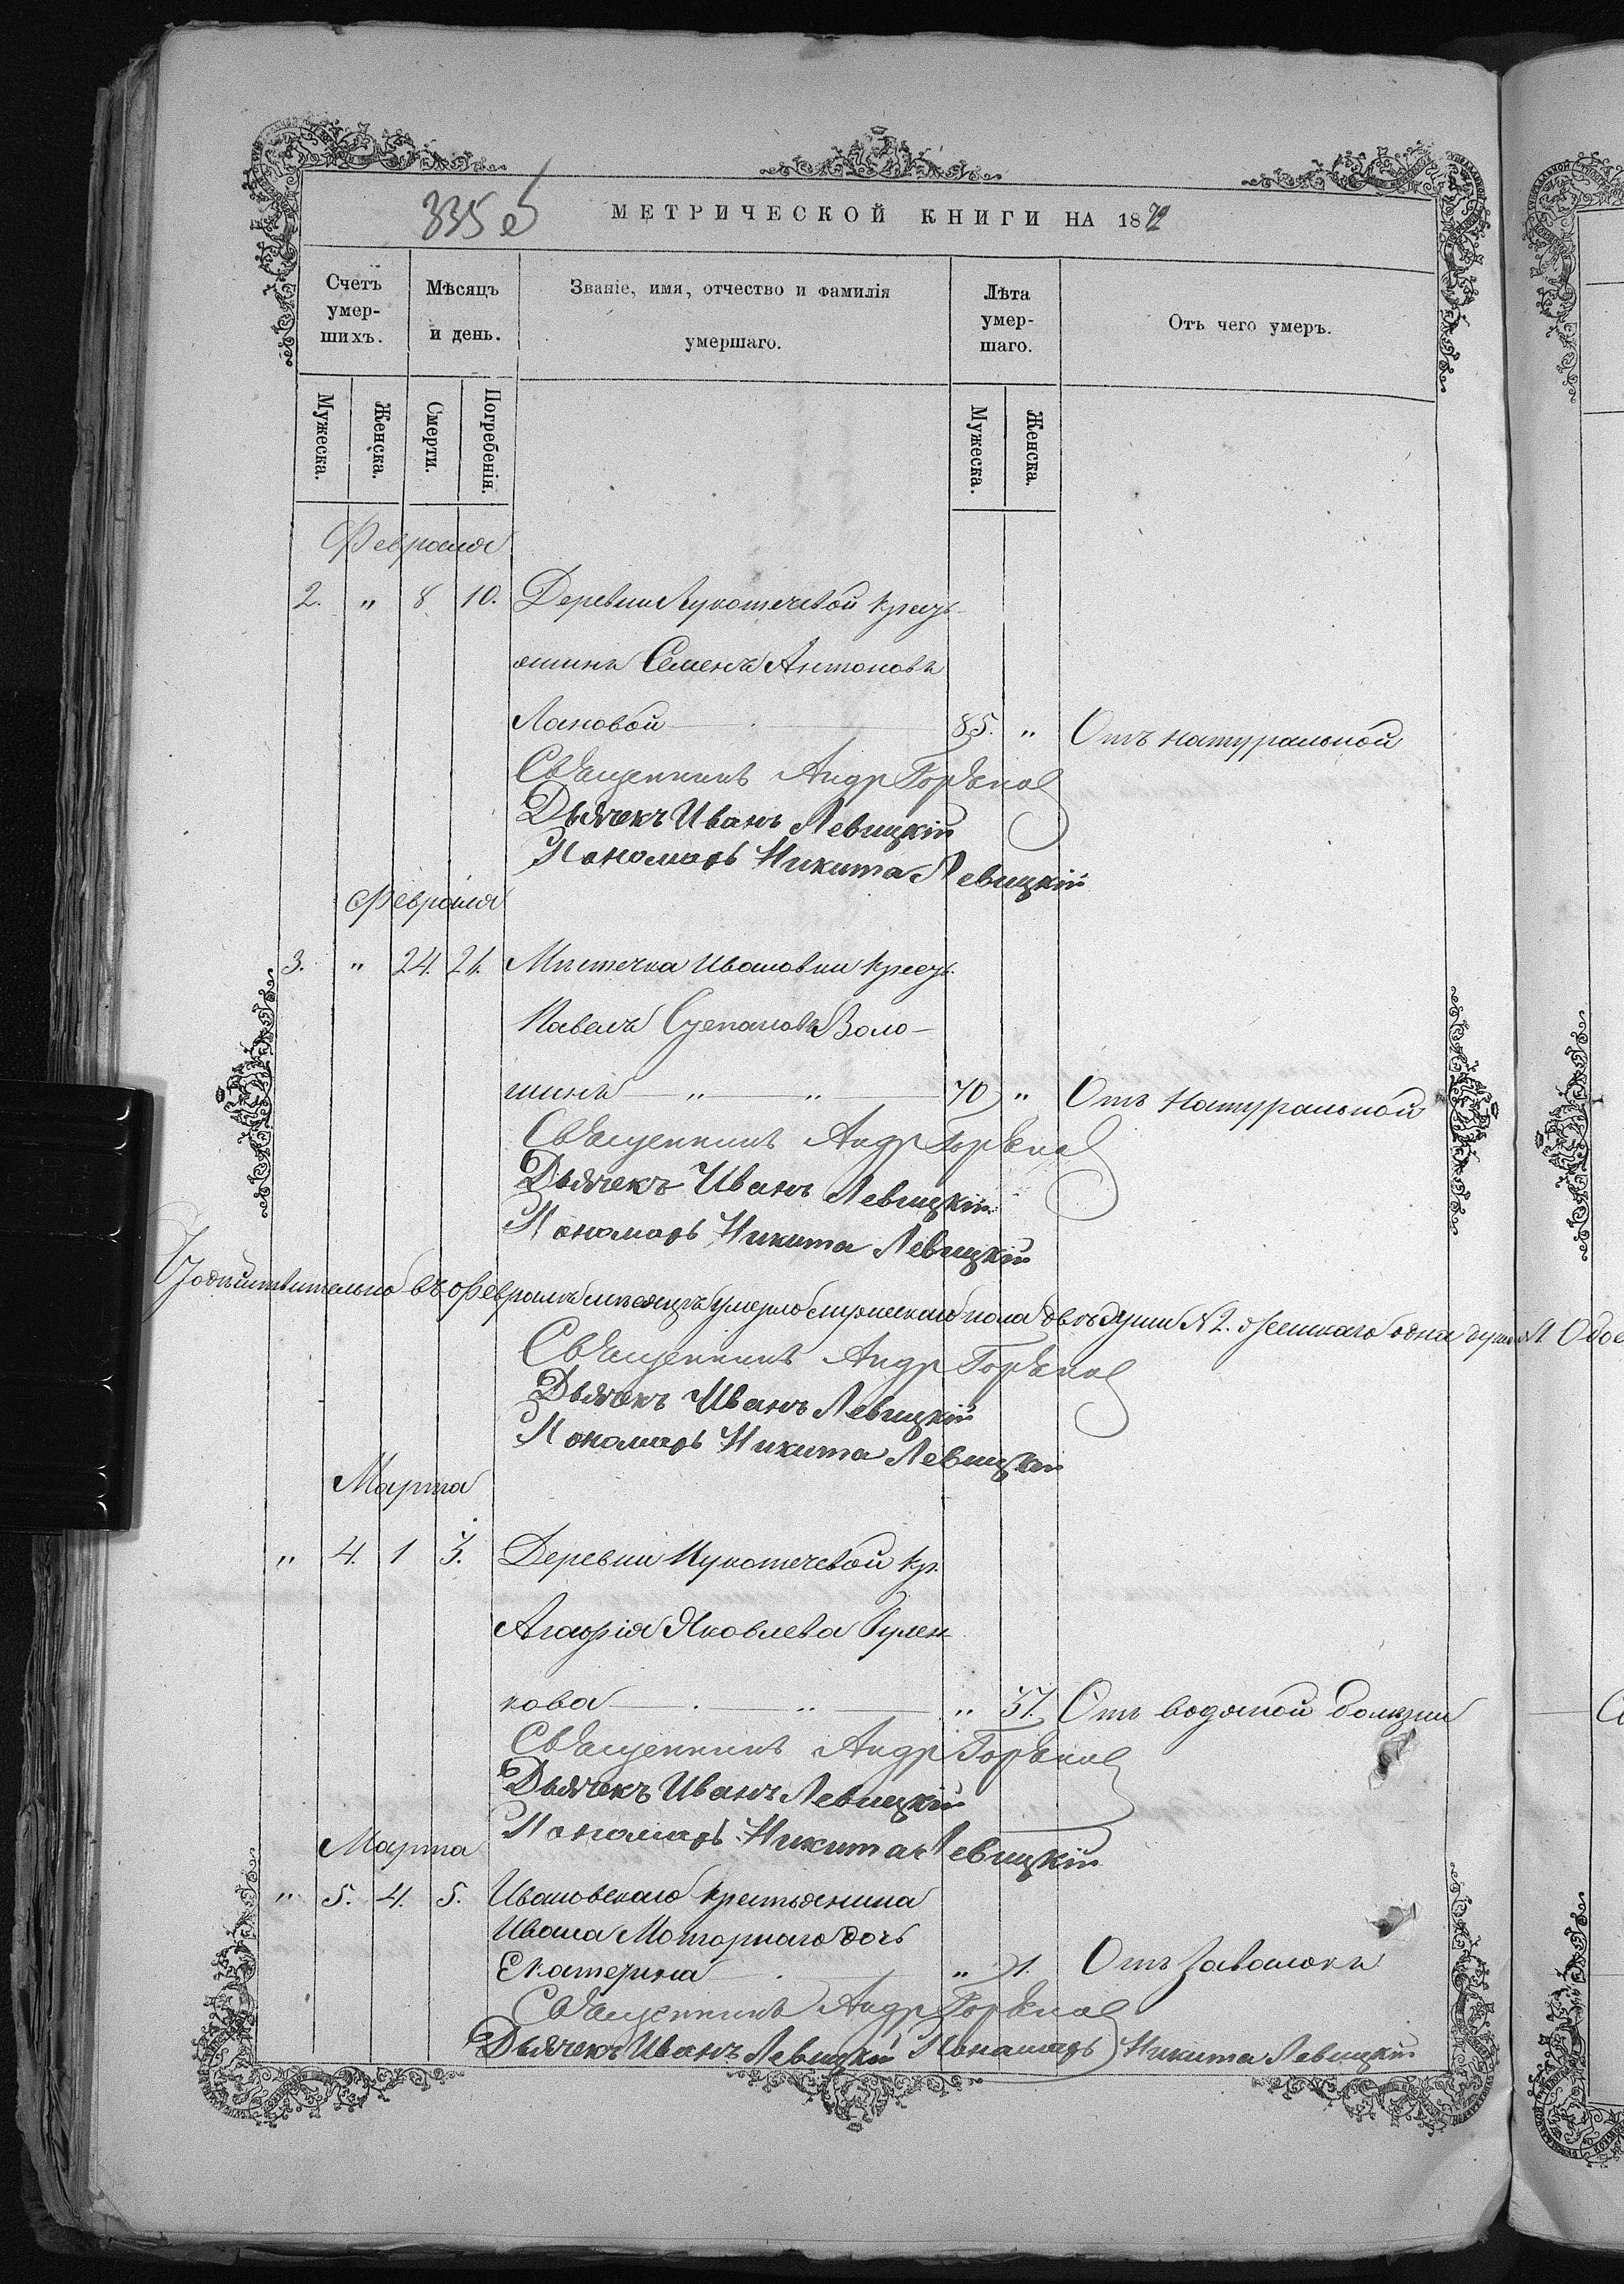 335 об
МЕТРИЧЕСКОЙ КНИГИ НА 1872
Счетъ умер-шихъ.
Мѣсяцъ и день.
Званіе, имя, отчество и фамилія умершаго.
Лѣта умер-шаго.
Отъ чего умеръ.
Мужеска.
Женска.
Смерти.
Погребенія.
Мужеска.
Женска.
Февраля
2. „ 8 10. Деревни Лукотечевой крест
янинъ Семенъ Антоновъ
Лановой 85. „ Отъ натуральной
Священникъ Андр
Дьячекъ Иванъ Левицкій
Пономарь Никита Левицкій
Февраля
3. „ 24. 26. Мѣстечка Ивановки крест.
Павелъ Степановъ Воло-
шинъ „ „ 70 „ Отъ натуральной
Священникъ Андр
Дьячекъ Иванъ Левицкій
Пономарь Никита Левицкій
въ Февралѣ мѣсяцѣ умерло мужескаго пола двѣ души №2. женскаго одна душа №1.
Священникъ Андр
Дьячекъ Иванъ Левицкій
Пономарь Никита Левицкій
Марта
„ 4. 1 3. Деревни Лукотечевой кр.
Агафія Яковлева Гулен
кова „ „ 37. Отъ водяной болѣзни
Священникъ Андр
Дьячекъ Иванъ Левицкій
Пономарь Никита Левицкій
Марта
„ 5. 4. 5. Ивановскаго крестьянина
Ивана Моторнаго дочь
Екатерина „ 1. Отъ завалокъ
Священникъ Андр
Дьячекъ Иванъ Левицкій Пономарь Никита Левицкій